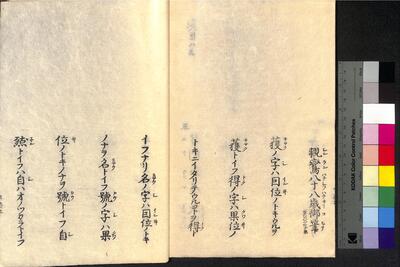 親鸞八十八歳御筆
獲ノ字ハ因位ノトキウルヲ
獲トイフ得ノ字ハ果位ノ
トキニイタリテウルコトヲ得ト
イフナリ名ノ字ハ因位ノトキ
ノナヲ名トイフ號ノ字ハ果
位ノトキノナヲ號トイフ自
然トイフハ自ハオノツカラトイフ
KODAK Color Control Patches